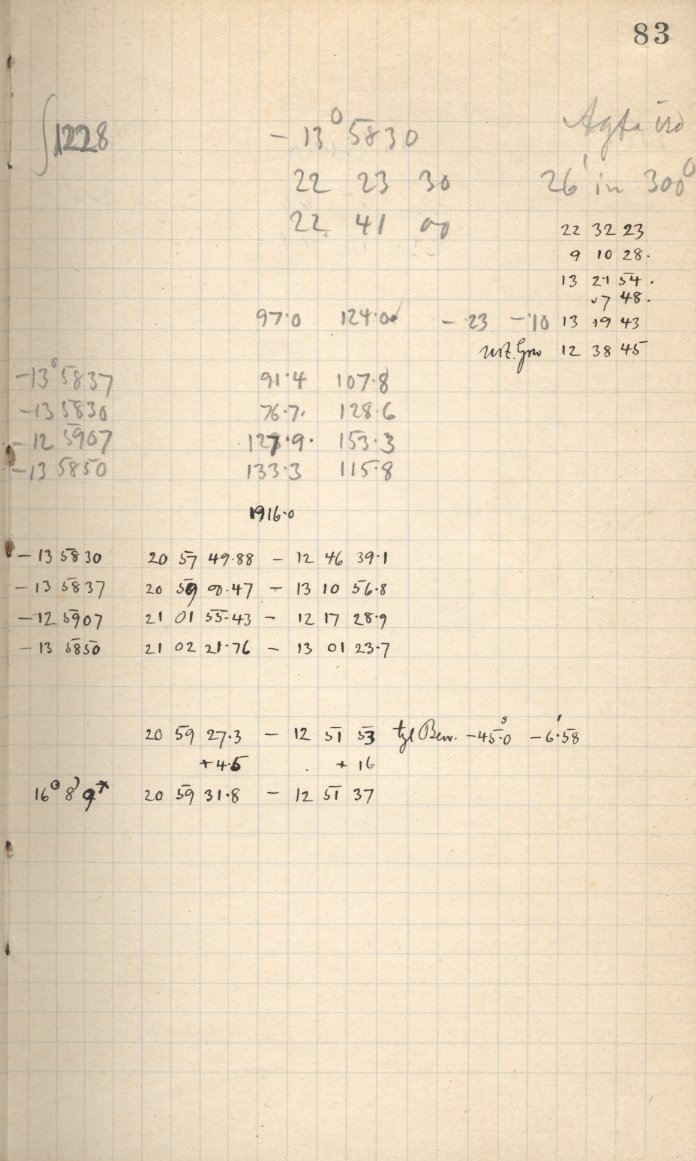 83
∫1228 -13° 5830 Agfa iso
22 23 30 26' in 300°
22 41 00
22 32 23
9 10 28.
13 21 54.
7 48.
97.0 124.0 -23 -10 13 19 43
mZ. Grw 12 38 45
-13° 5837 91.4 107.8
-13 5830 76.7. 128.6
-12 5907 127.9. 153.3
-13 5850 133.3 115.8
1916.0
-13 5830 20 57 49.88 - 12 46 39.1
-13 5837 20 59 0.47 - 13 10 56.8
-12 5907 21 01 55.43 - 12 17 28.9
-13 5850 21 02 21.76 - 13 01 23.7
20 59 27.3 - 12 51 53 tgl Bew. -45.ˢ0 -6.'58
+4.5 + 16
16° 8) 20 59 31.8 - 12 51 37